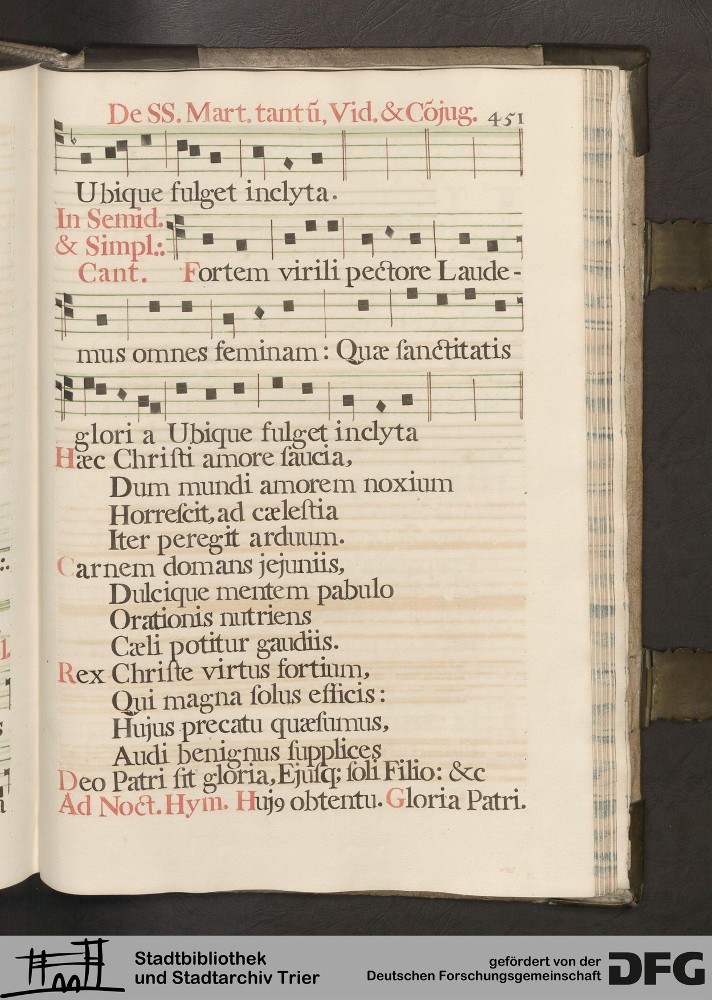 De SS. Mart. tantũ, Vid. & Cõjug. 451
Ubique fulget inclyta.
In Semid.
& Simpl.:.
Cant. Fortem virili pectore Laude-
mus omnes feminam: Quæ ſanctitatis
glori a Ubique fulget inclyta
Hæc Chriſti amore ſaucia,
Dum mundi amorem noxium
Horreſcit, ad cæleſtia
Iter peregit arduum.
Carnem domans jejuniis,
Dulcique mentem pabulo
Orationis nutriens
Cæli potitur gaudiis.
Rex Chriſte virtus fortium,
Qui magna ſolus efficis:
Hujus precatu quæſumus,
Audi benignus ſupplices
Deo Patri ſit gloria, Ejuſq; ſoli Filio: &c
Ad Noct. Hym. Huj9 obtentu. Gloria Patri.
Stadtbibliothek
und Stadtarchiv Trier
gefördert von der
Deutschen Forschungsgemeinschaft
DFG